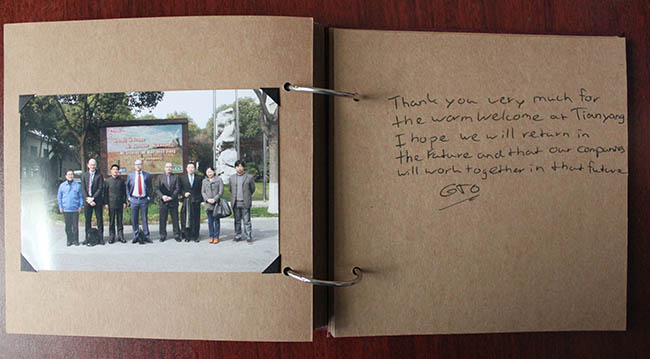 Thank you very much for
the warm welcome at Tianyang
I hope we will return in
the Future and that our companies
will work together in that future
GTO